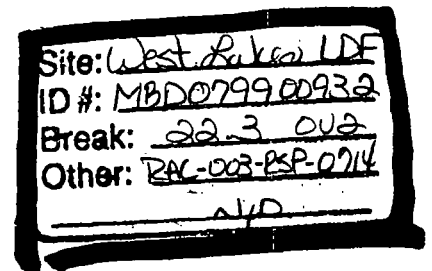 Site: West Lake LDF
ID #: MBD079900932
Break: 22.3 OU2
Other: RAC-003-PSP-0714
N/D